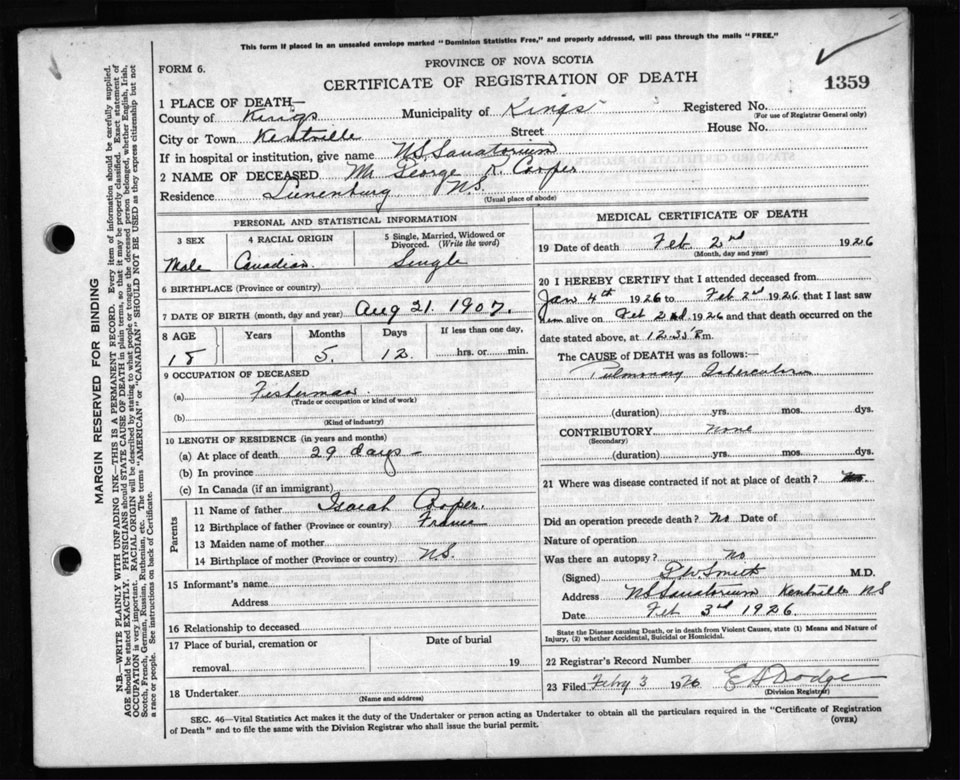 This form if placed in an unsealed envelope marked "Dominion Statistics Free," and properly addressed, will pass through the mails "FREE."
PROVINCE OF NOVA SCOTIA
FORM 6.
CERTIFICATE OF REGISTRATION OF DEATH
1359
1 PLACE OF DEATH—
County of Kings Municipality of Kings Registered No.
(For use of Registrar General only)
City or Town Kentville Street House No.
If in hospital or institution, give name NS. Sanatorium
2 NAME OF DECEASED Mr George R. Cooper
Residence Lunenburg NS.
(Usual place of abode)
PERSONAL AND STATISTICAL INFORMATION
3 SEX 4 RACIAL ORIGIN 5 Single, Married, Widowed or Divorced. (Write the word)
Male Canadian. Single
6 BIRTHPLACE (Province or country)
7 DATE OF BIRTH (month, day and year) Aug 21. 1907.
8 AGE Years Months Days If less than one day,
18 5. 12 hrs. or min.
9 OCCUPATION OF DECEASED
(a) Fisherman
(Trade or occupation or kind of work)
(b)
(Kind of industry)
10 LENGTH OF RESIDENCE (in years and months)
(a) At place of death 29 days —
(b) In province
(c) In Canada (if an immigrant)
Parents
11 Name of father Isaiah Cooper.
12 Birthplace of father (Province or country) France
13 Maiden name of mother
14 Birthplace of mother (Province or country) NS.
15 Informant's name
Address
16 Relationship to deceased
17 Place of burial, cremation or removal Date of burial
19
18 Undertaker
(Name and address)
MEDICAL CERTIFICATE OF DEATH
19 Date of death Feb 2nd 1926
(Month, day and year)
20 I HEREBY CERTIFY that I attended deceased from
Jan 4th 1926 to Feb 2nd 1926 that I last saw
him alive on Feb 2nd 1926 and that death occurred on the
date stated above, at 12.35 m.
The CAUSE of DEATH was as follows:—
Pulmonary Tuberculosis
(duration) yrs. mos. dys.
CONTRIBUTORY None
(Secondary)
(duration) yrs. mos. dys.
21 Where was disease contracted if not at place of death?
Did an operation precede death? No Date of
Nature of operation
Was there an autopsy? No
(Signed) P W. Smith M.D.
Address NS Sanatorium Kentville NS
Date Feb 3rd 1926.
State the Disease causing Death, or in death from Violent Causes, state (1) Means and Nature of
Injury, (2) whether Accidental, Suicidal or Homicidal.
22 Registrar's Record Number
23 Filed Feby 3 1926 E A Dodge
(Division Registrar)
SEC. 46—Vital Statistics Act makes it the duty of the Undertaker or person acting as Undertaker to obtain all the particulars required in the "Certificate of Registration
of Death" and to file the same with the Division Registrar who shall issue the burial permit. (OVER)
MARGIN RESERVED FOR BINDING
N.B.—WRITE PLAINLY WITH UNFADING INK—THIS IS A PERMANENT RECORD. Every item of information should be carefully supplied.
AGE should be stated EXACTLY. PHYSICIANS should STATE CAUSE OF DEATH in plain terms, so that it may be properly classified. Exact statement of
OCCUPATION is very important. RACIAL ORIGIN will be described by stating to what people or tongue the deceased person belonged, whether English, Irish,
Scotch, French, German, Russian, Ruthenian, etc. The terms "AMERICAN" or "CANADIAN" SHOULD NOT BE USED as they express citizenship but not
a race or people. See instructions on back of Certificate.